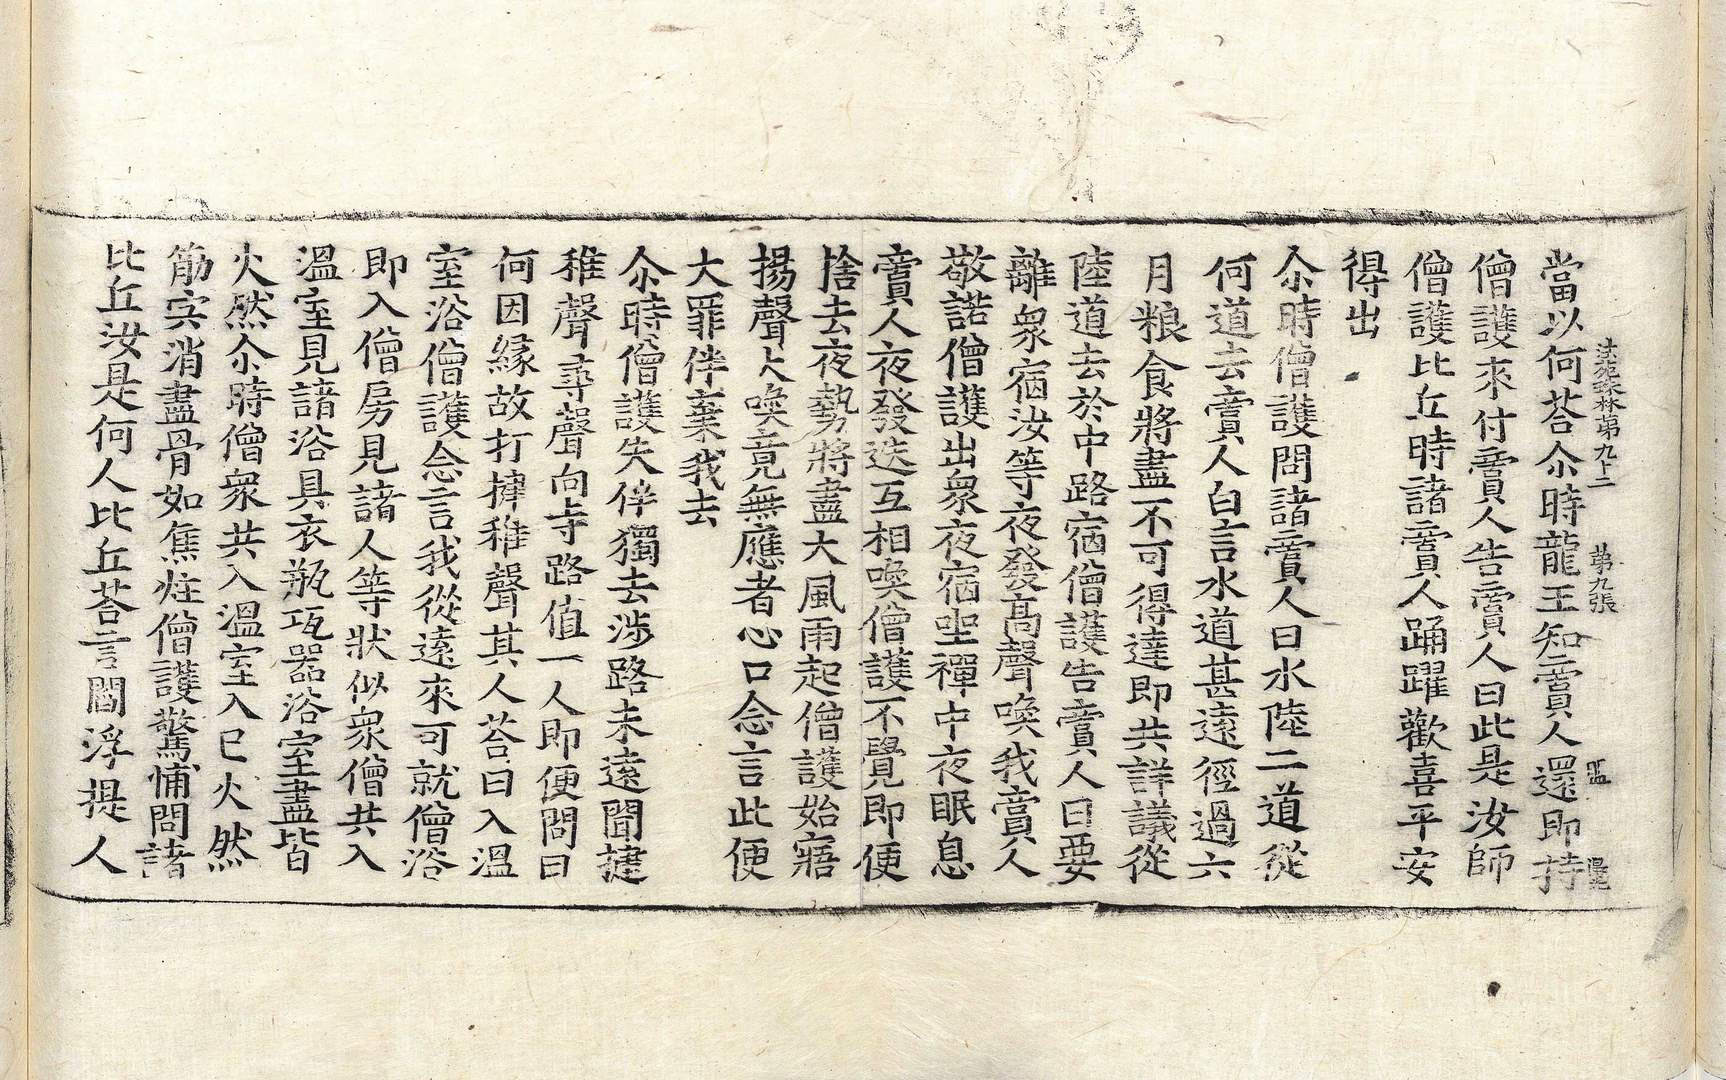 法苑珠林第九十二 第九張
當以何荅尒時龍王知賣人還即持
僧護來付賣人告賣人曰此是汝師
僧護比丘時諸賣人踊躍歡喜平安
得出
尒時僧護問諸賣人曰水陸二道從
何道去賣人白言水道甚遠徑過六
月粮食將盡不可得達即共詳議從
陸道去於中路宿僧護告賣人曰要
離衆宿汝等夜發高聲喚我賣人
敬諾僧護出衆夜宿坐禪中夜眠息
賣人夜發迭互相喚僧護不覺即便
捨去夜勢將盡大風雨起僧護始寤
揚聲大喚竟無應者心口念言此便
大罪伴棄我去
尒時僧護失伴獨去涉路未遠聞揵
稚聲尋聲向寺路值一人即便問曰
何因緣故打揵稚聲其人荅曰入溫
室浴僧護念言我從遠來可就僧浴
即入僧房見諸人等狀似衆僧共入
溫室見諸浴具衣瓶瓨器浴室盡皆
火然尒時僧衆共入溫室入已火然
筋宍消盡骨如焦炷僧護驚怖問諸
比丘汝是何人比丘荅言閻浮提人